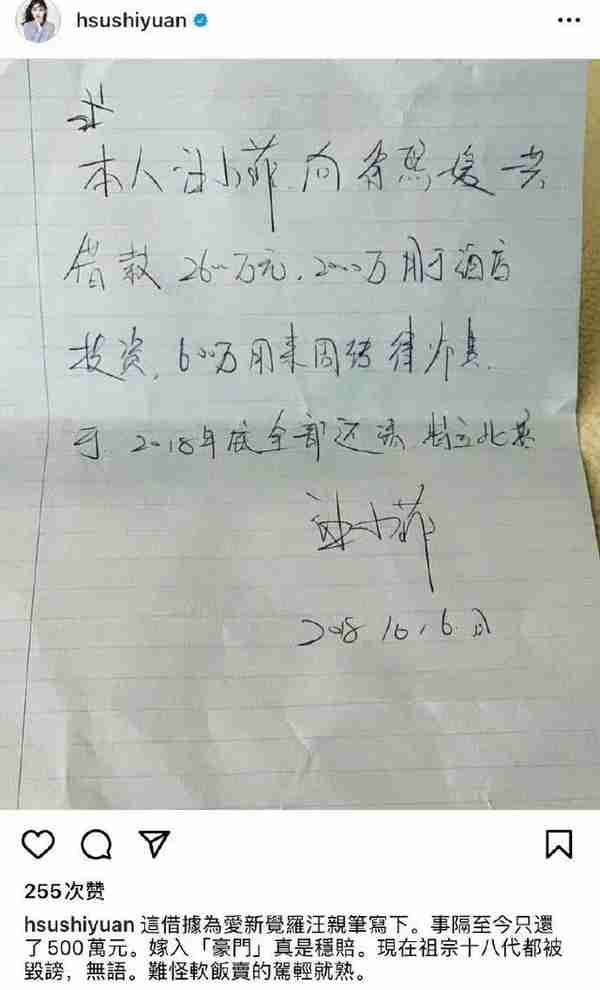 hsushiyuan
本人汪小菲向徐熙媛共
借款2600万元,2000万用于酒店
投资,600万用来周转律师费.
于2018年底全部还清 特立此据
汪小菲
2018.10.6.日
255次赞
hsushiyuan 這借據為愛新覺羅汪親筆寫下。事隔至今只還
了500萬元。嫁入「豪門」真是穩賠。現在祖宗十八代都被
毀謗，無語。難怪軟飯賣的駕輕就熟。